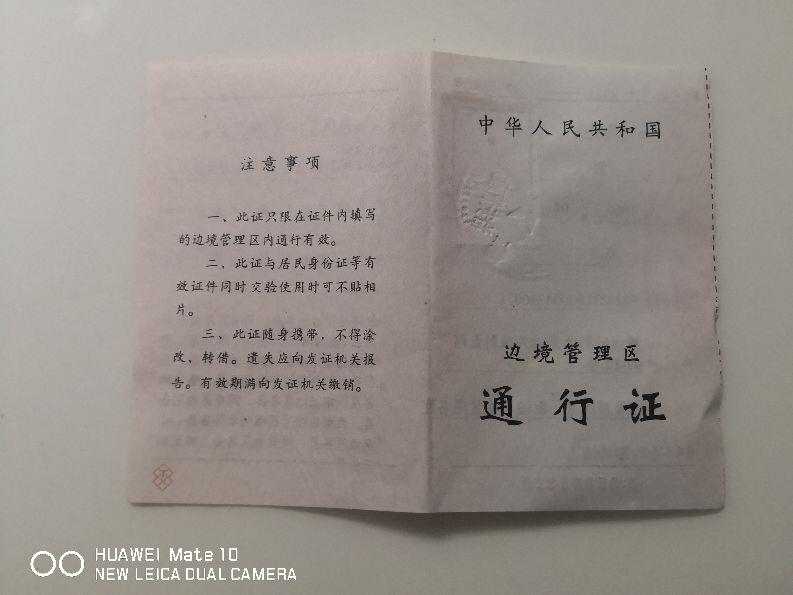 注意事项
一、此证只限在证件内填写
的边境管理区内通行有效。
二、此证与居民身份证等有
效证件同时交验使用时可不贴相
片。
三、此证随身携带，不得涂
改、转借。遗失应向发证机关报
告。有效期满向发证机关缴销。
中华人民共和国
边境管理区
通行证
HUAWEI Mate 10
NEW LEICA DUAL CAMERA